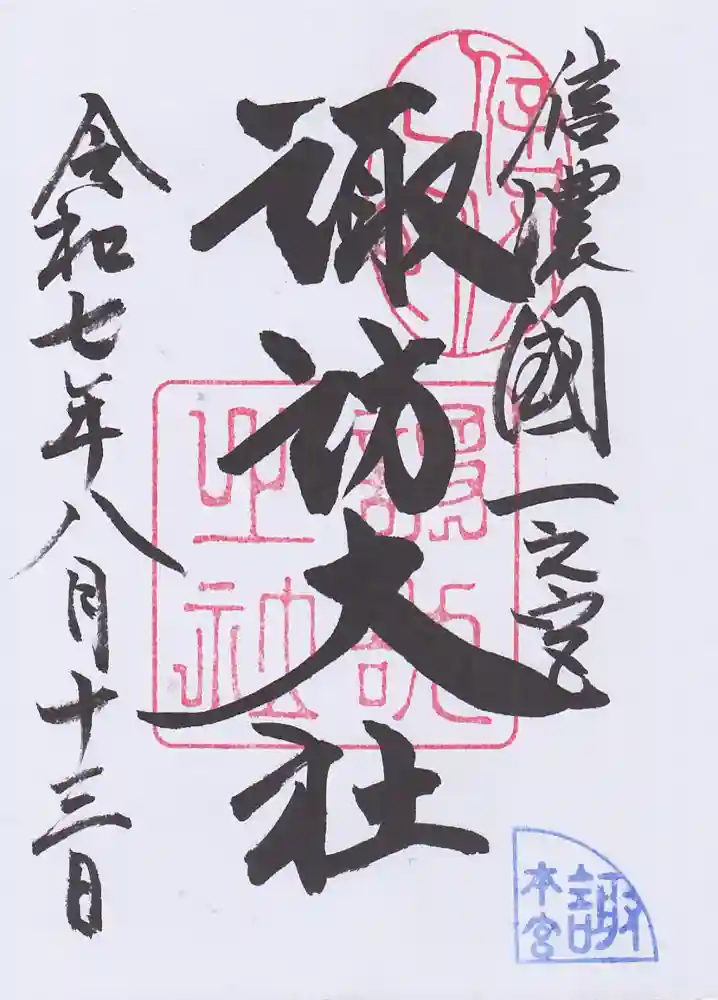 信濃國一之宮
諏訪大社
令和七年八月十三日
諏
本宮